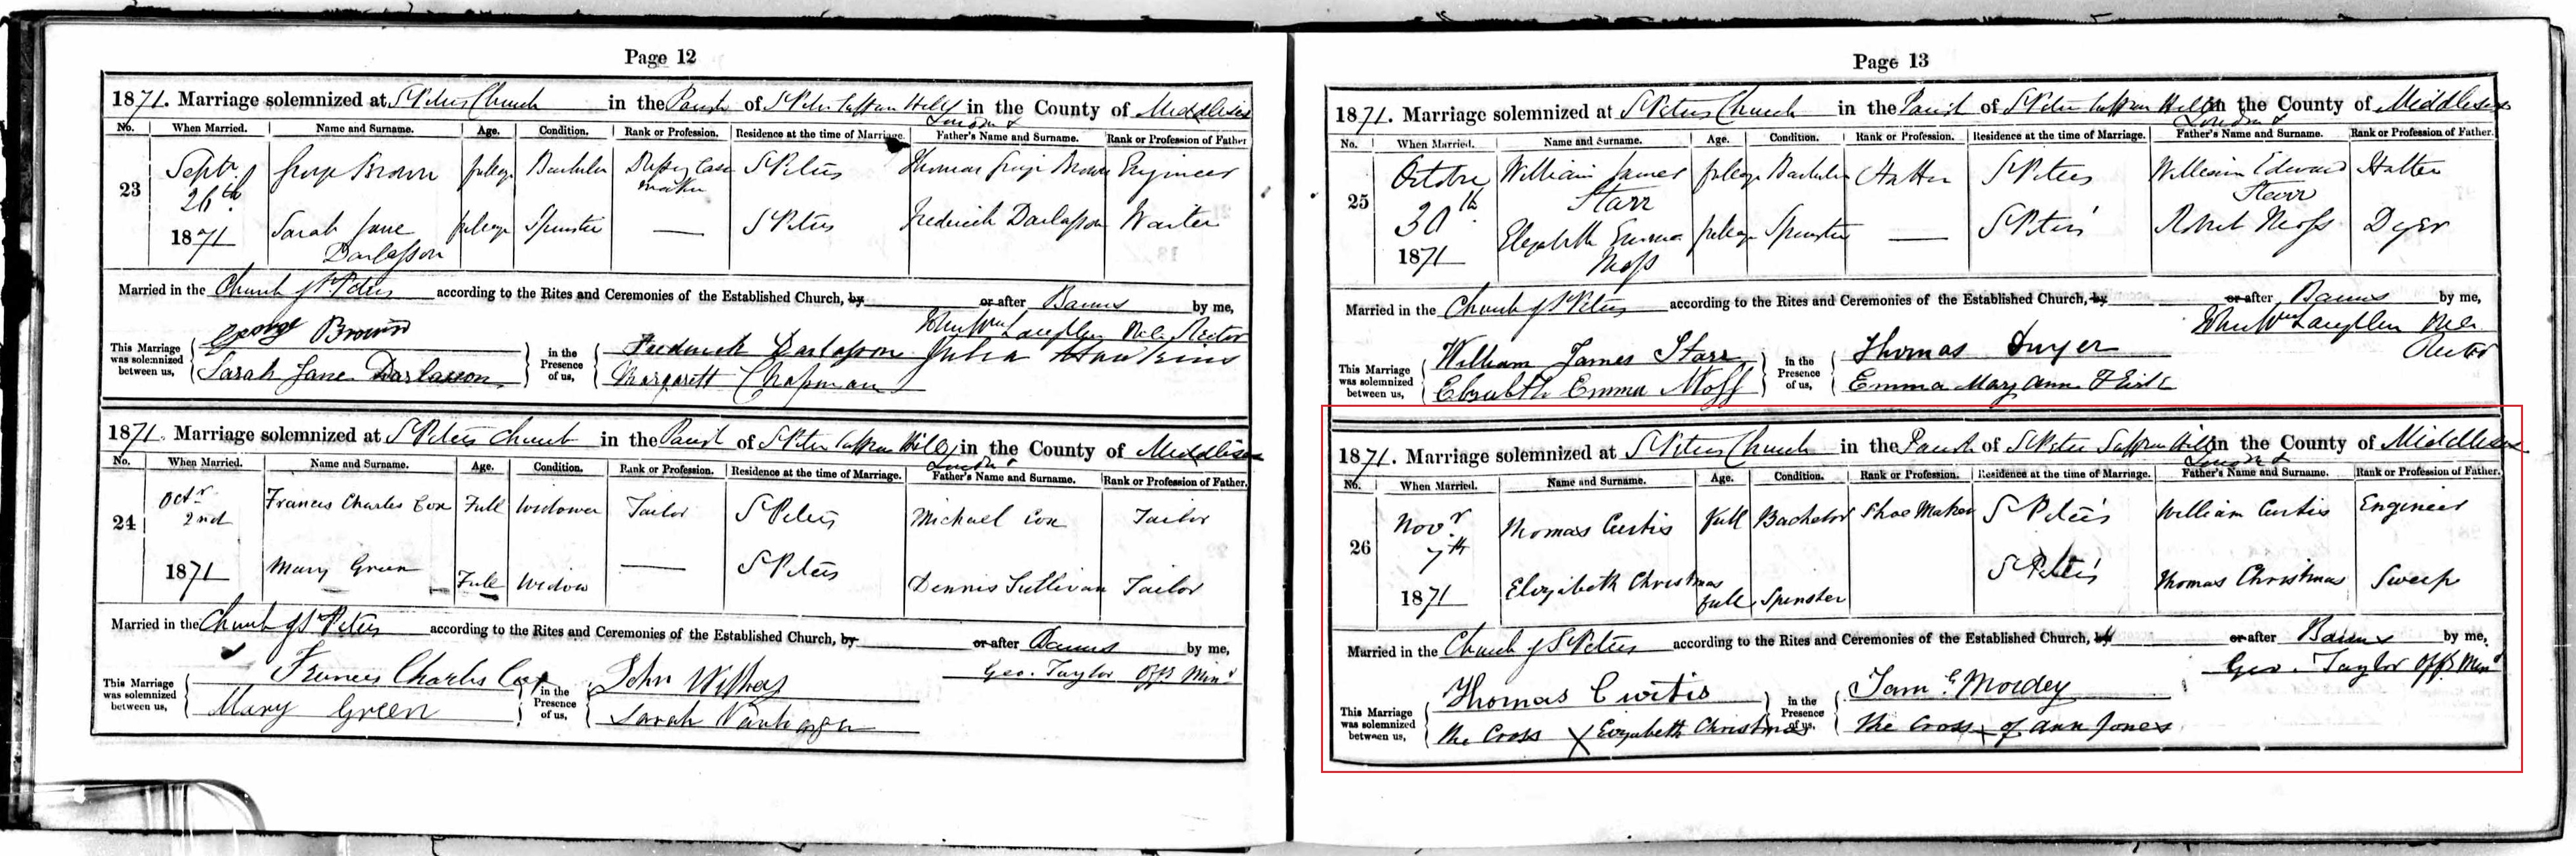 Page 12
1871. Marriage solemnized at St Peters Church in the Parish of St Peter Saffron Hill in the County of Middlesex
London &
No. When Married. Name and Surname. Age. Condition. Rank or Profession. Residence at the time of Marriage. Father's Name and Surname. Rank or Profession of Father
23 Septr 26th 1871 George Brown full age Bachelor Dressing Case maker St Peters Thomas George Brown Engineer
Sarah Jane Darlasson full age Spinster — St Peters Frederick Darlasson Waiter
Married in the Church of St Peters according to the Rites and Ceremonies of the Established Church, by or after Banns by me,
John Wm Laughlin Rector
This Marriage was solemnized between us, George Brown in the Presence of us, Frederick Darlasson Julia Hawkins
Sarah Jane Darlasson Margarett Chapman
1871. Marriage solemnized at St Peters Church in the Parish of St Peter Saffron Hill in the County of Middlesex
London &
No. When Married. Name and Surname. Age. Condition. Rank or Profession. Residence at the time of Marriage. Father's Name and Surname. Rank or Profession of Father.
24 Octr 2nd 1871 Francis Charles Cox Full Widower Tailor St Peters Michael Cox Tailor
Mary Green Full Widow — St Peters Dennis Sullivan Tailor
Married in the Church of St Peters according to the Rites and Ceremonies of the Established Church, by or after Banns by me,
Geo. Taylor Offg Minr
This Marriage was solemnized between us, Francis Charles Cox in the Presence of us, John
Mary Green Sarah
Page 13
1871. Marriage solemnized at St Peters Church in the Parish of St Peter Saffron Hill in the County of Middlesex
London &
No. When Married. Name and Surname. Age. Condition. Rank or Profession. Residence at the time of Marriage. Father's Name and Surname. Rank or Profession of Father.
25 October 30th 1871 William James Starr full age Bachelor Hatter St Peters William Edward Starr Hatter
Elizabeth Emma Moss full age Spinster — St Peters Robert Moss Dyer
Married in the Church of St Peters according to the Rites and Ceremonies of the Established Church, by or after Banns by me,
John Wm Laughlin
Rector
This Marriage was solemnized between us, William James Starr in the Presence of us, Thomas Dwyer
Elizabeth Emma Moss Emma Mary Ann
1871. Marriage solemnized at St Peters Church in the Parish of St Peter Saffron Hill in the County of Middlesex
London &
No. When Married. Name and Surname. Age. Condition. Rank or Profession. Residence at the time of Marriage. Father's Name and Surname. Rank or Profession of Father.
26 Novr 7th 1871 Thomas Curtis Full Bachelor Shoe Maker St Peters William Curtis Engineer
Elizabeth Christmas full Spinster St Peters Thomas Christmas Sweep
Married in the Church of St Peters according to the Rites and Ceremonies of the Established Church, by or after Banns by me,
Geo. Taylor Offg Minr
This Marriage was solemnized between us, Thomas Curtis in the Presence of us, Sam. G. Mordey
The Cross X Elizabeth Christmas The Cross x of Ann Jones